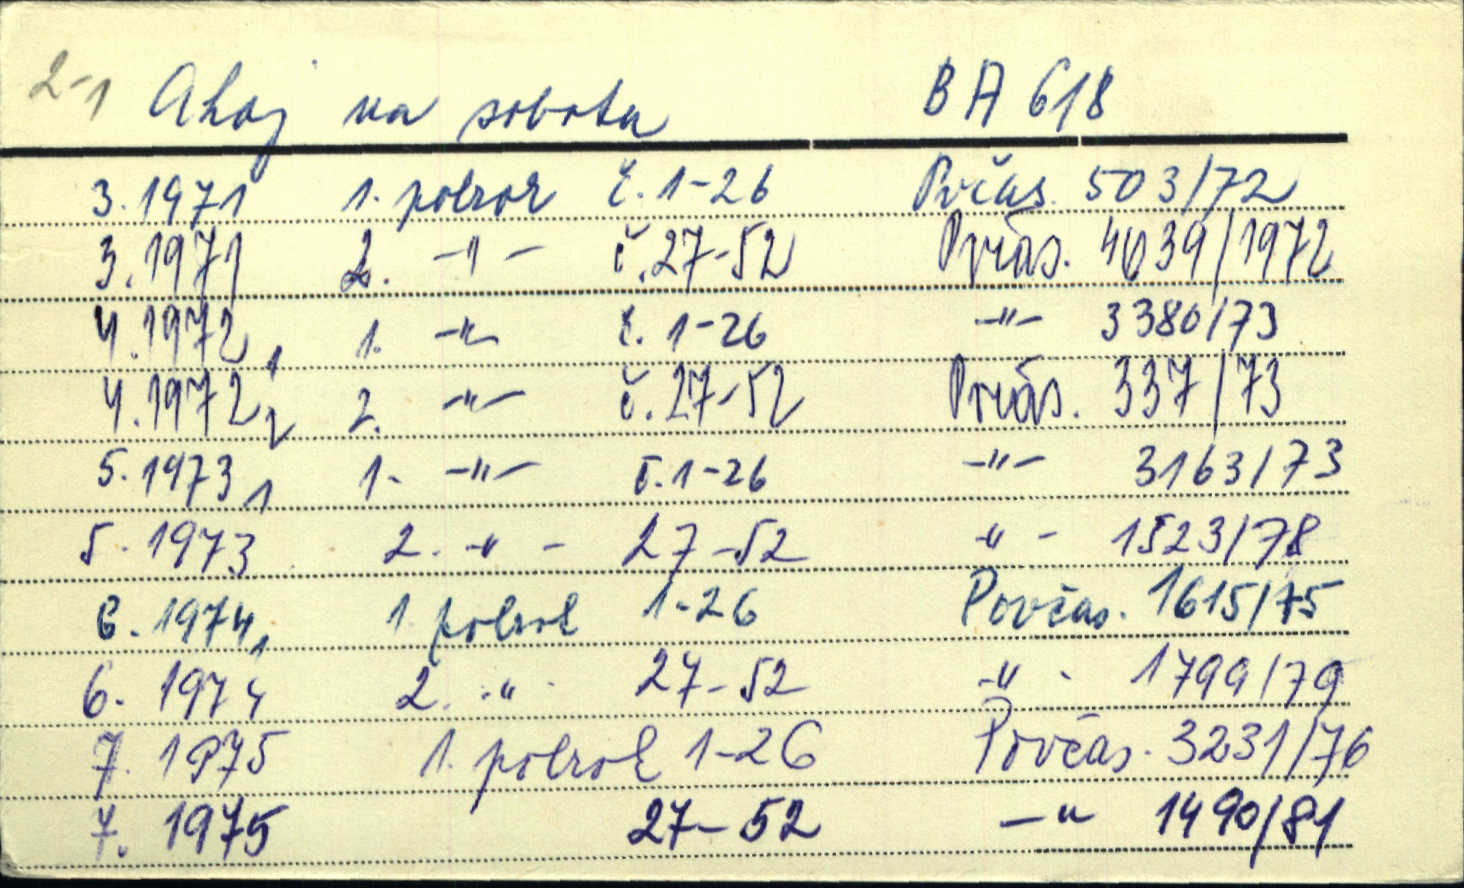 2-1 Ahoj na sobotu BA 618
3.1971 1. polrok č.1-26 Pvčas. 503/72
3.1971 2. -"- č.27-52 Prvás. 4039/1972
4.1972,1 1. -"- č.1-26 -"- 3380/73
4.1972,2 2. -"- č.27-52 Prvás. 337/73
5.1973,1 1. -"- č.1-26 -"- 3163/73
5.1973 2. -"- 27-52 -"- 1523/78
6.1974,1 1. polrok 1-26 Povčas. 1615/75
6.1974 2. -"- 27-52 -"- 1799/79
7.1975 1. polrok 1-26 Povčas. 3231/76
7.1975 27-52 -"- 1490/81